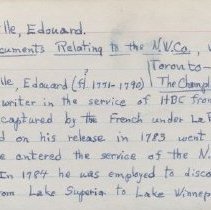 lle, Edouard.
cuments Relating to the N.W.Co.,
Toronto-
lle, Edouard (fl. 1771-1790) The Champl
writer in the service of HBC from
captured by the French under La P
d on his release in 1783 went
e entered the service of the N.
In 1784 he was employed to disco
rom Lake Superio to Lake Winnep